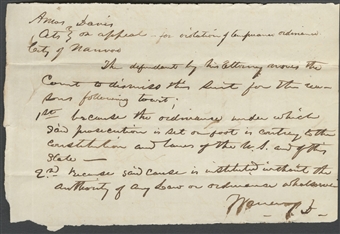 Amos Davis
Ats } on appeal - for violation of temperance ordinance
City of
The defendant by his Attorney moves the
Court to dismiss this suit for the rea-
sons following towit;
1st because the ordinance under which
said prosecution is set on foot is contrary to the
constitution and laws of the U.S. and of this
State —
2nd because said cause is instituted without the
authority of any law or ordinance whatsoever